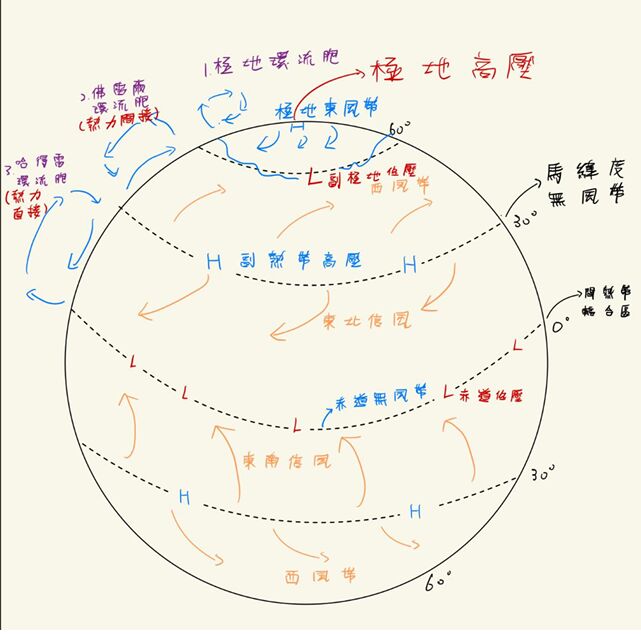 1.極地環流胞
極地高壓
2.佛雷爾
環流胞
(熱力間接)
極地東風帶
H
60°
3.哈得雷
環流胞
(熱力
直接)
L副極地低壓
西風帶
馬緯度
無風帶
30°
H 副熱帶高壓 H
東北信風
間熱帶
輻合區
0°
L
L
L
赤道無風帶
L赤道低壓
L
東南信風
30°
H
H
西風帶
60°